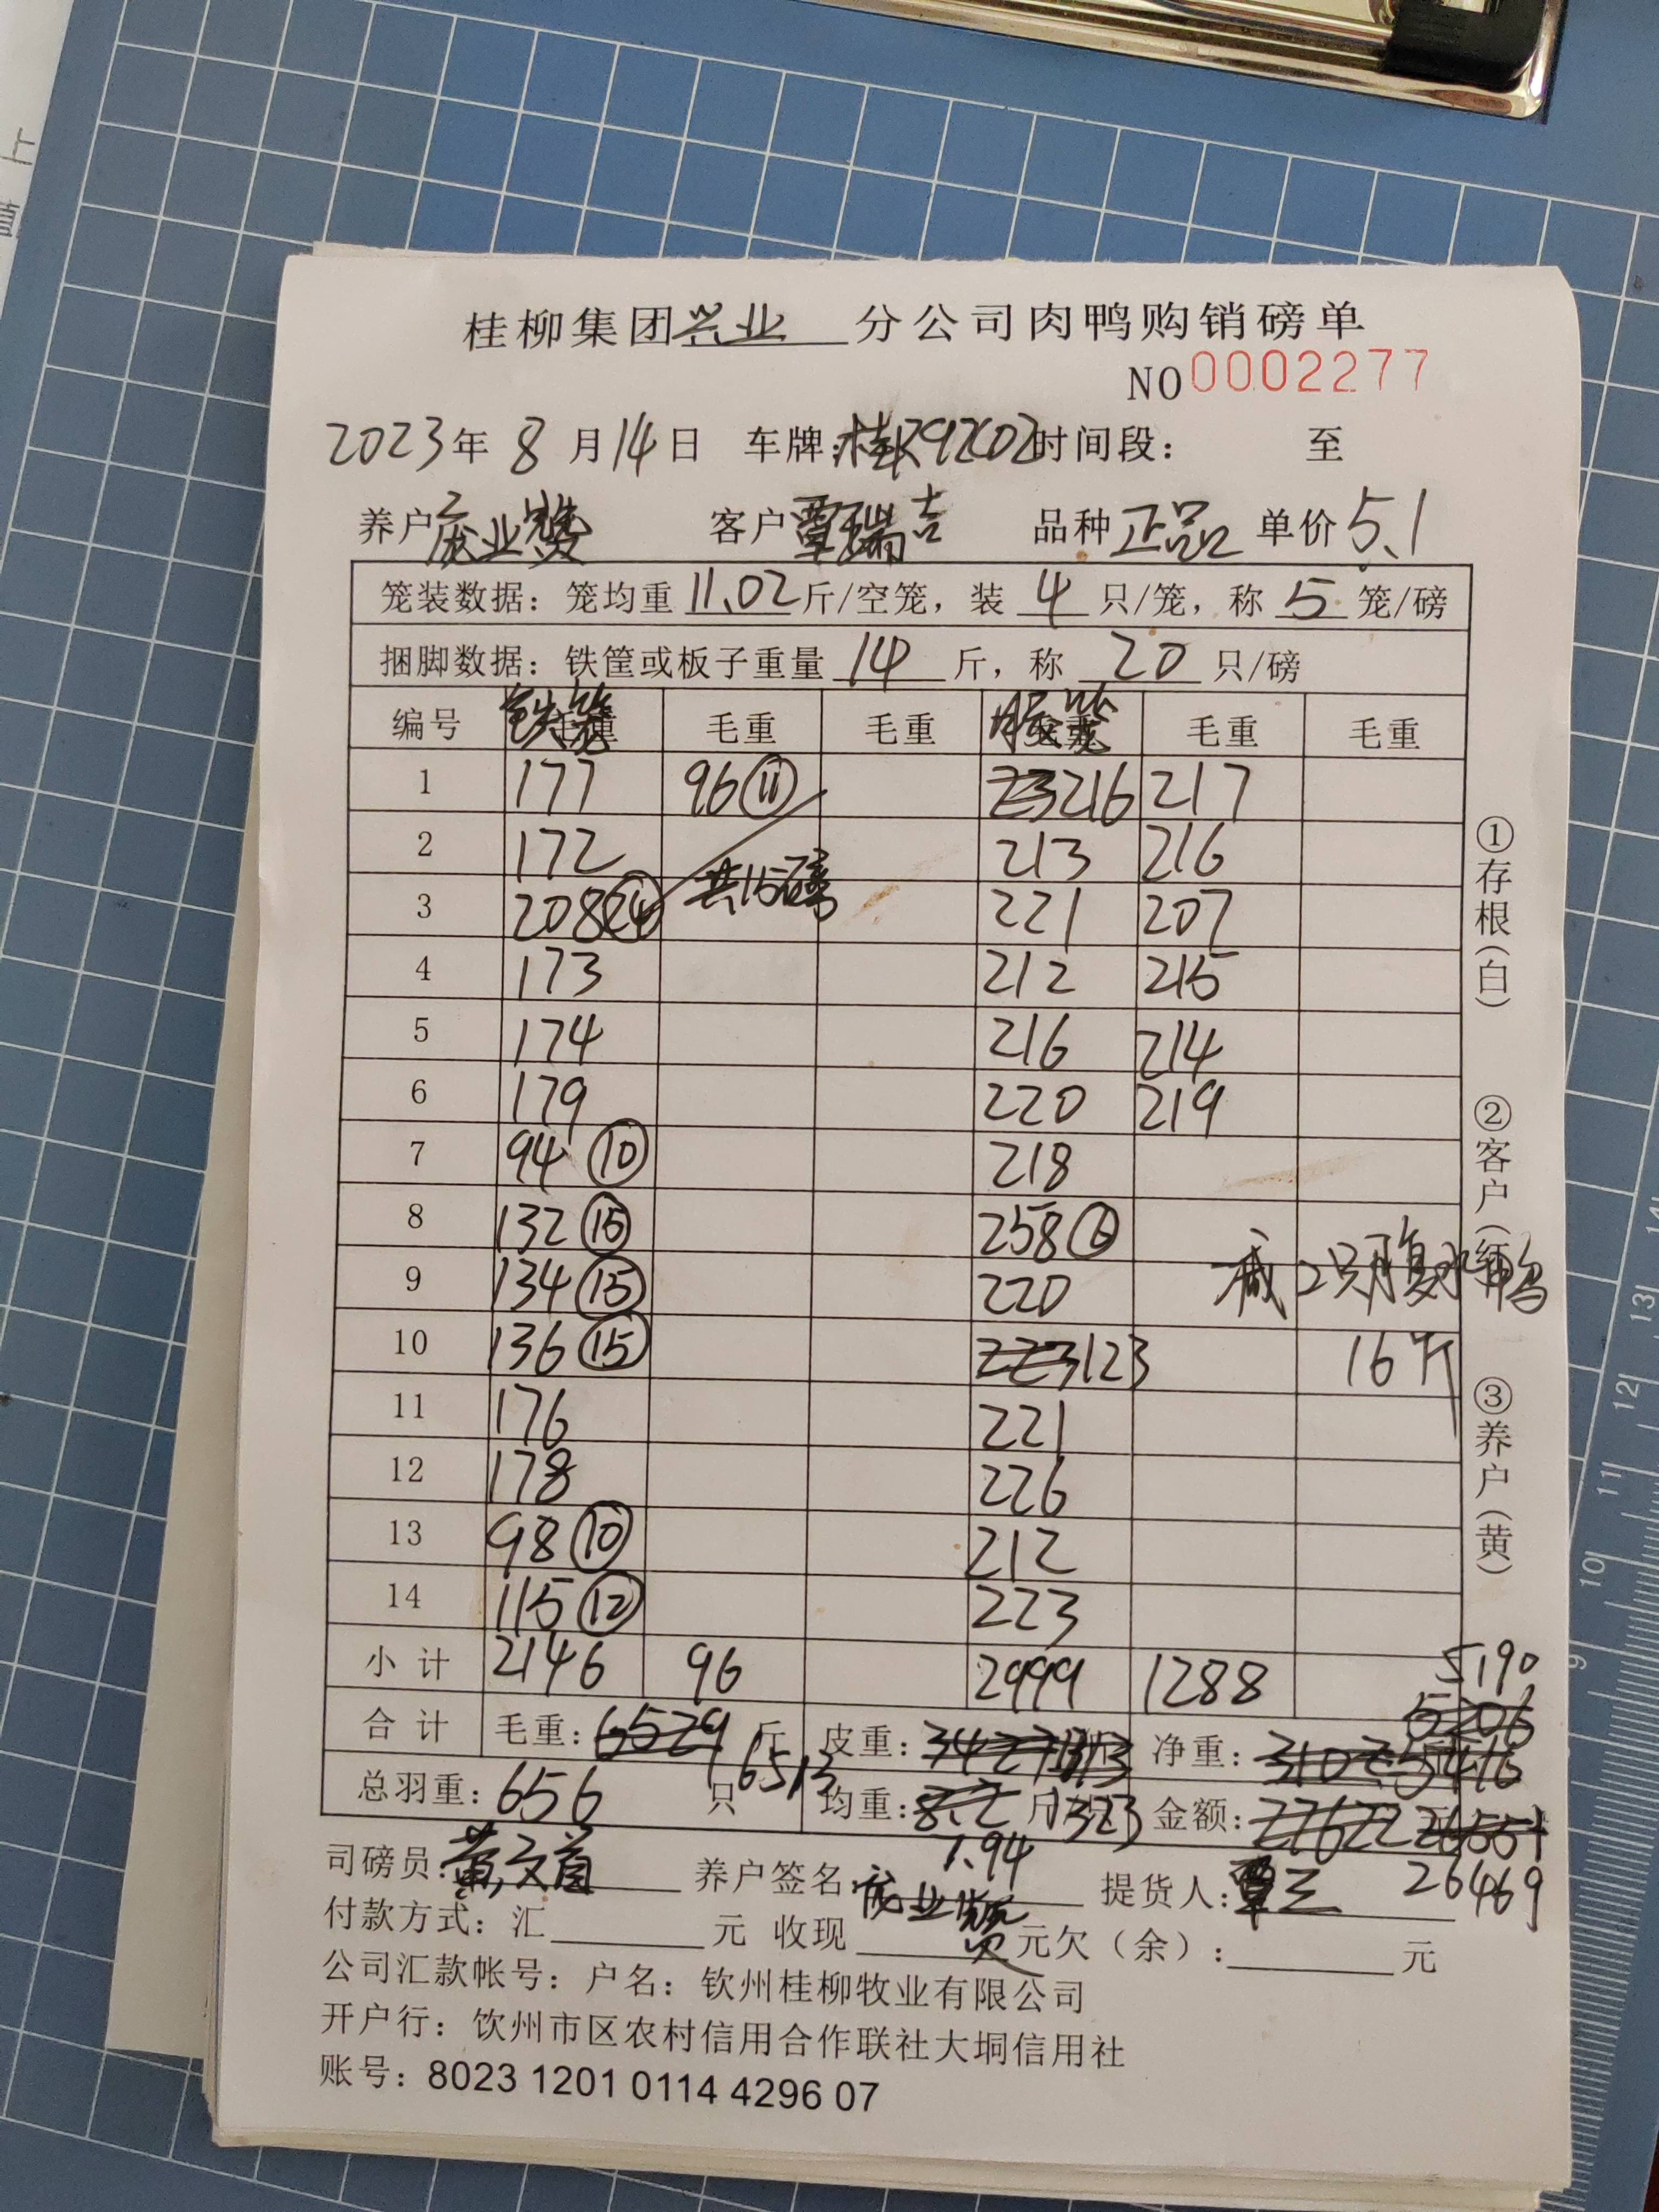 桂柳集团兴业分公司肉鸭购销磅单
NO 0002277
2023年 8 月 14 日 车牌: 时间段: 至
养户庞业 客户覃瑞吉 品种 正品 单价 5.1
笼装数据: 笼均重 11.02 斤/空笼, 装 4 只/笼, 称 5 笼/磅
捆脚数据: 铁筐或板子重量 14 斤, 称 20 只/磅
编号 铁笼 毛重 毛重 胶笼 毛重 毛重
1 177 96 ⑪ 216 217
2 172 213 216
共15磅
3 208 ㉔ 221 207
4 173 212 215
5 174 216 214
6 179 220 219
7 94 ⑩ 218
8 132 ⑮ 258 ⑥
9 134 ⑮ 220 减2只腹水鸭
10 136 ⑮ 123 16斤
11 176 221
12 178 226
13 98 ⑩ 212
14 115 ⑫ 223
小计 2146 96 2999 1288 5190
5206
合计 毛重: 6529 斤 6513 皮重: 净重:
总羽重: 656 只 均重: 8.2 1323 金额: 22622
7.94 26469
司磅员: 黄文首 养户签名: 庞业 提货人: 覃三
付款方式: 汇 元 收现 元欠(余): 元
公司汇款帐号: 户名: 钦州桂柳牧业有限公司
开户行: 饮州市区农村信用合作联社大垌信用社
账号: 8023 1201 0114 4296 07
①存根(白) ②客户(红) ③养户(黄)
上
值
14
13
12
11
10
9